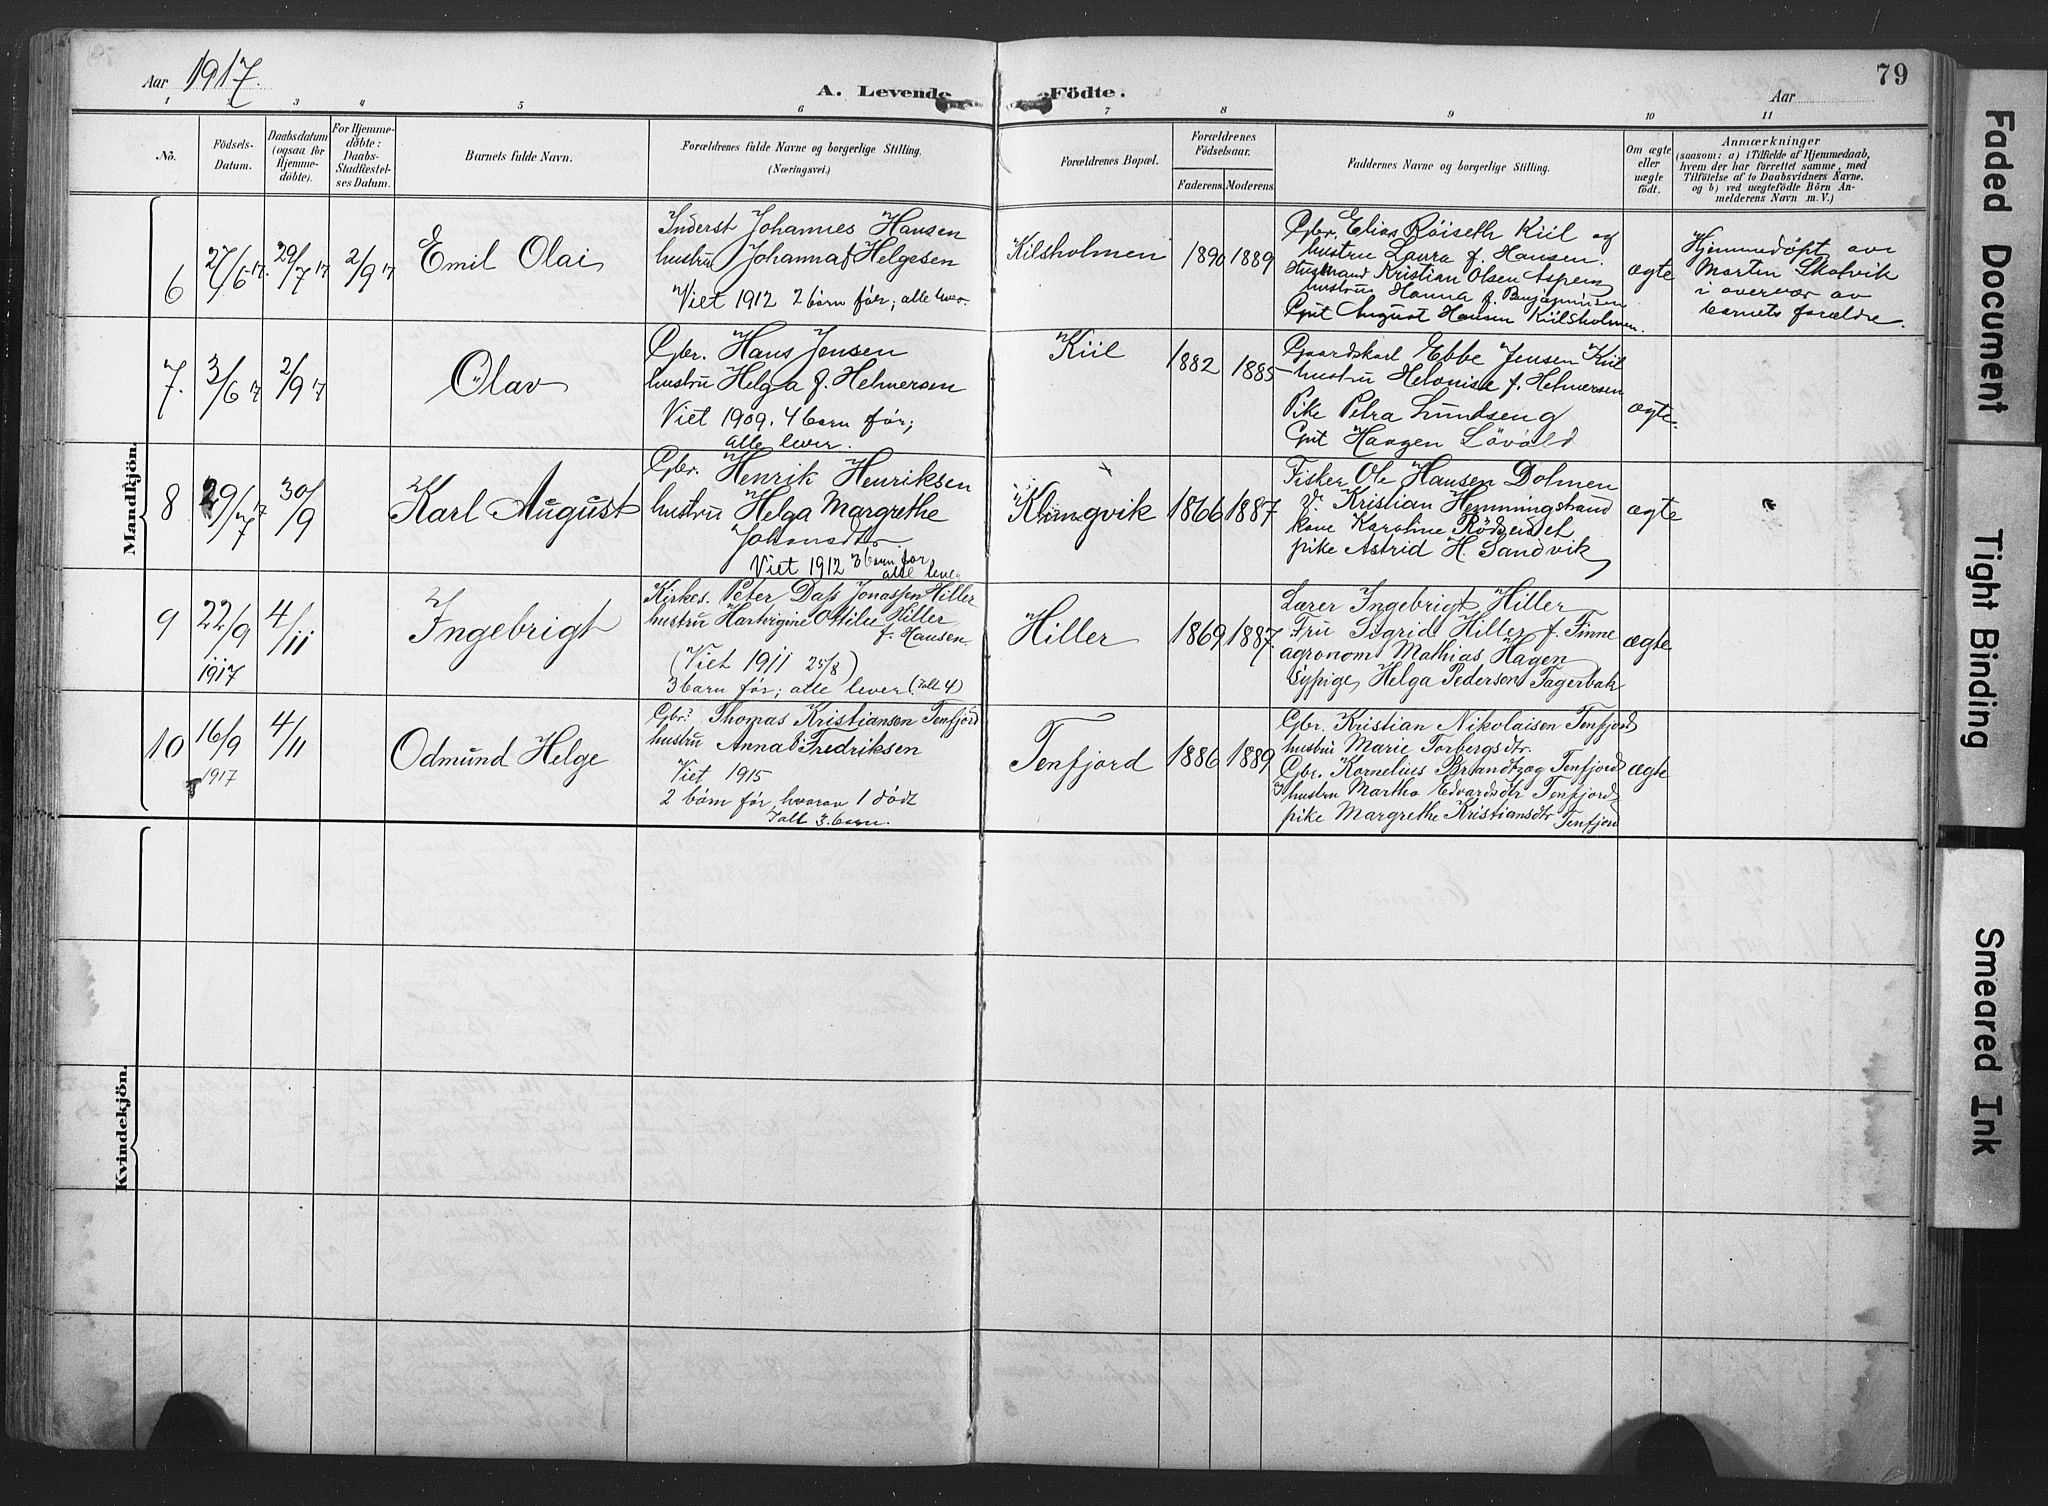 Aar 1917.
A. Levende Födte.
Aar
79
1 2 3 4 5 6 7 8 9 10 11
No.
Födsels-
Datum.
Daabsdatum
(ogsaa for
Hjemme-
döbte).
For Hjemme-
döbte:
Daabs-
Stadfæstel-
ses Datum.
Barnets fulde Navn.
Forældrenes fulde Navne og borgerlige Stilling.
(Næringsvei.)
Forældrenes Bopæl.
Forældrenes
Födselsaar.
Faderens. Moderens.
Faddernes Navne og borgerlige Stilling.
Om ægte
eller
uægte
födt.
Anmærkninger
(saasom: a) i Tilfælde af Hjemmedaab,
hvem der har forrettet samme, med
Tilföielse af to Daabsvidners Navne,
og b) ved uægtefödte Börn An-
melderens Navn m. V.)
Mandkjön.
6
27/6 17.
29/7 17
2/9 17
Emil Olai
Inderst Johannes Hansen
hustru Johanna f Helgesen
Viet 1912 2 barn før; alle lever
Kilsholmen
1890
1889
Gbr. Elias Röiseth Kiil og
hustru Laura f. Hansen.
Husmand Kristian Olsen Aspern
hustru Hanna f. Benjaminsen
Gut August Hansen Kiilsholmen.
ægte
Hjemmedöpt av
Morten Skofvik
i overvær av
barnets forældre.
7.
3/6 17
2/9 17
Olav
Gbr. Hans Jensen
hustru Helga f. Helmersen
Viet 1909. 4 barn før;
alle lever.
Kiil
1882
1885
Gaardskarl Ebbe Jensen Kiil
hustru Helonise f. Helmersen
Pike Petra Lundseng
Gut Haagen Lövold
ægte.
8
29/7 17
30/9
Karl August
Gbr. Henrik Henriksen
hustru Helga Margrethe
Johansdtr
Viet 1912 3 barn før
alle lever
Klungvik
1866
1887
Fisker Ole Hansen Dolmen
Kristian Hemmingstrand
kone Karoline
pike Astrid H. Sandvik
ægte
9
22/9
1917
4/11
Ingebrigt
Kirkes. Peter Dass Jonassen Hiller
hustru Hartvigine Ottilie Hiller
f. Hansen.
(Viet 1911 25/8)
3 barn før; alle lever (Ialt 4)
Hiller
1869
1887.
Lærer Ingebrigt Hiller
Fru Sigrid Hiller f. Finne
agronom Mathias Hagen
Sypige Helga Pederson Fagerbak
ægte
10
16/9
1917
4/11
Odmund Helge
Gbr. Thomas Kristiansen Tenfjord
hustru Anna f Fredriksen
Viet 1915
2 barn før, hvorav 1 dødt
Ialt 3 barn.
Tenfjord
1886
1889
Gbr. Kristian Nikolaisen Tenfjord
hustru Marie Torbergsdtr.
Gbr. Kornelius Brandtzæg Tenfjord
og hustru Martha Edvardsdtr Tenfjord,
pike Margrethe Kristiansdtr Tenfjord
ægte
Kvindekjön.
Faded Document
Tight Binding
Smeared Ink